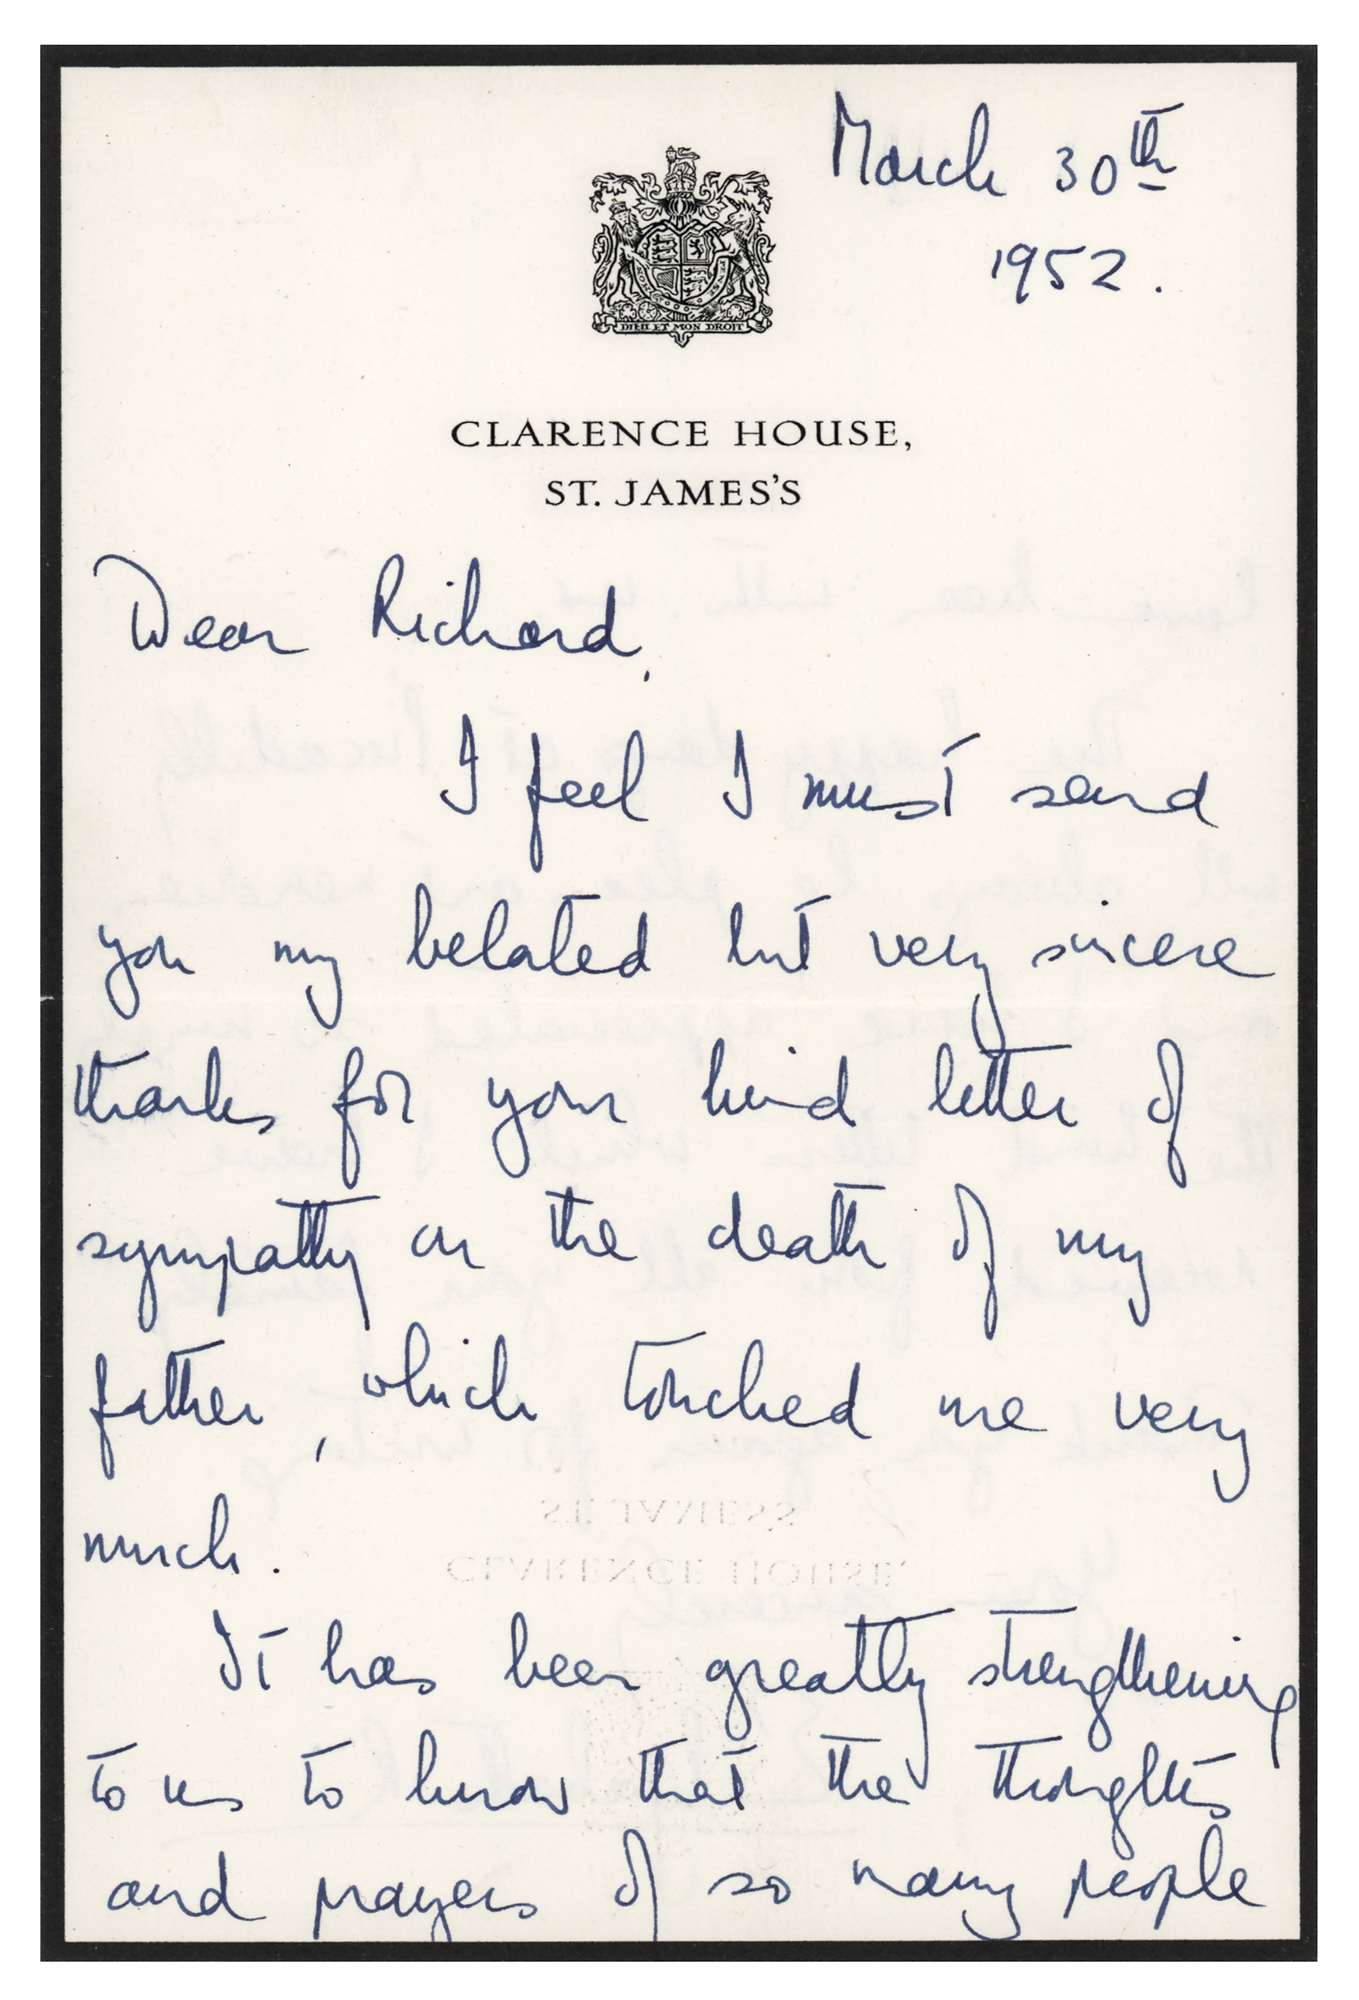 March 30th
1952.
DIEU ET MON DROIT
CLARENCE HOUSE,
ST. JAMES'S
Dear Richard,
I feel I must send
you my belated but very sincere
thanks for your kind letter of
sympathy on the death of my
father, which touched me very
much.
It has been greatly strengthening
to us to know that the thoughts
and prayers of so many people